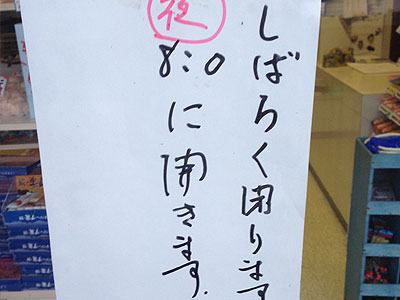 しばらく困ります
夜
8:0に開きます.